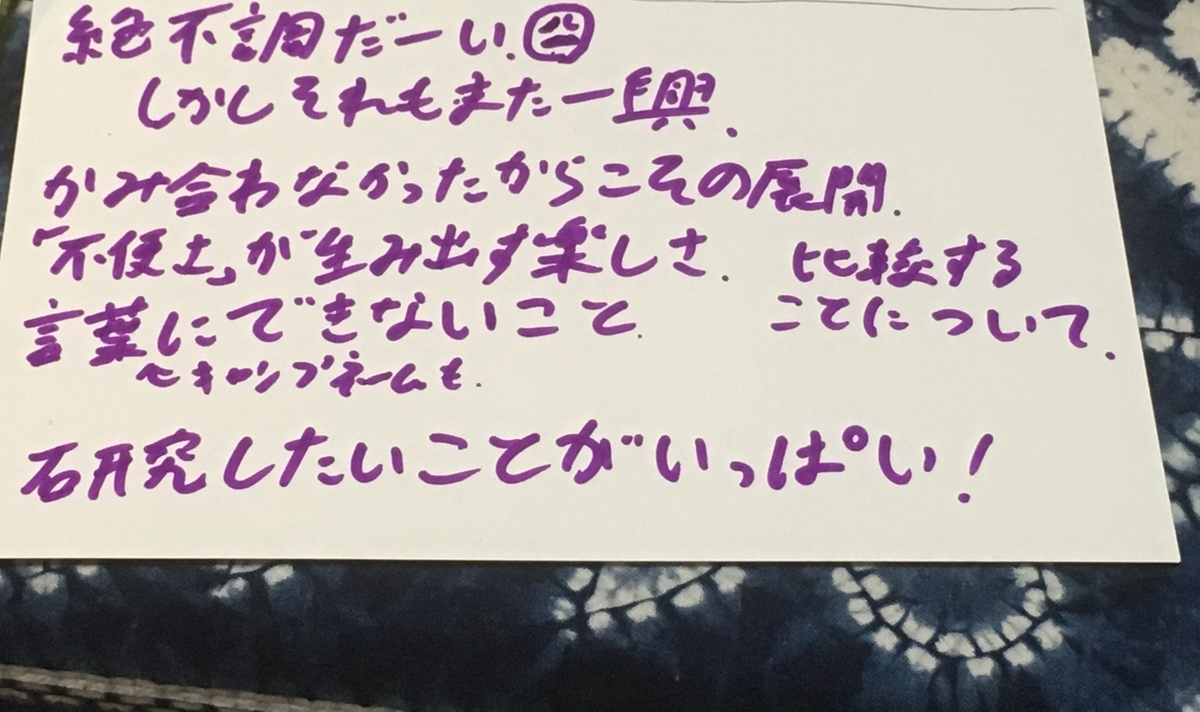 絶不調だーい.
しかしそれもまた一興.
かみ合わなかったからこその展開.
「不便さ」が生み出す楽しさ.
言葉にできないこと.
〜キャンプネームも.
比較する
ことについて.
研究したいことがいっぱい!